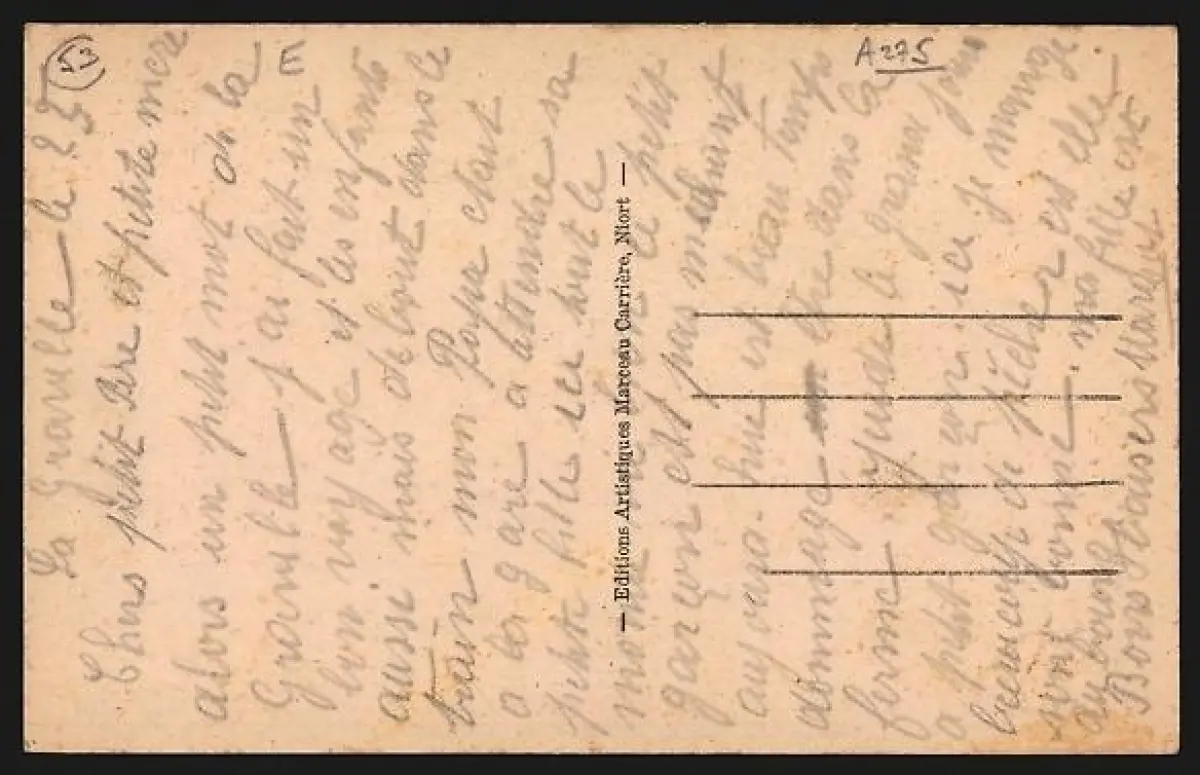 53
E
A275
La Granille le 25
Chers petit Pere et petite mere
alors un petit mot de la
Granille j ai fait un
bon voyage et les enfants
aussi mais de bout dans le
train mon Papa etait
a la gare a attendre sa
petite fille ici tout le
monde le petit
garçon est pas méchant
aujourd-hui est beau temps
dommage etre dans la
ferme le grand jour
a petit garçon ici je mange
beaucoup de pêche est elle
sont bonne. ma fille est
au bout
Bons Baisers
— Editions Artistiques Marceau Carrière, Niort —